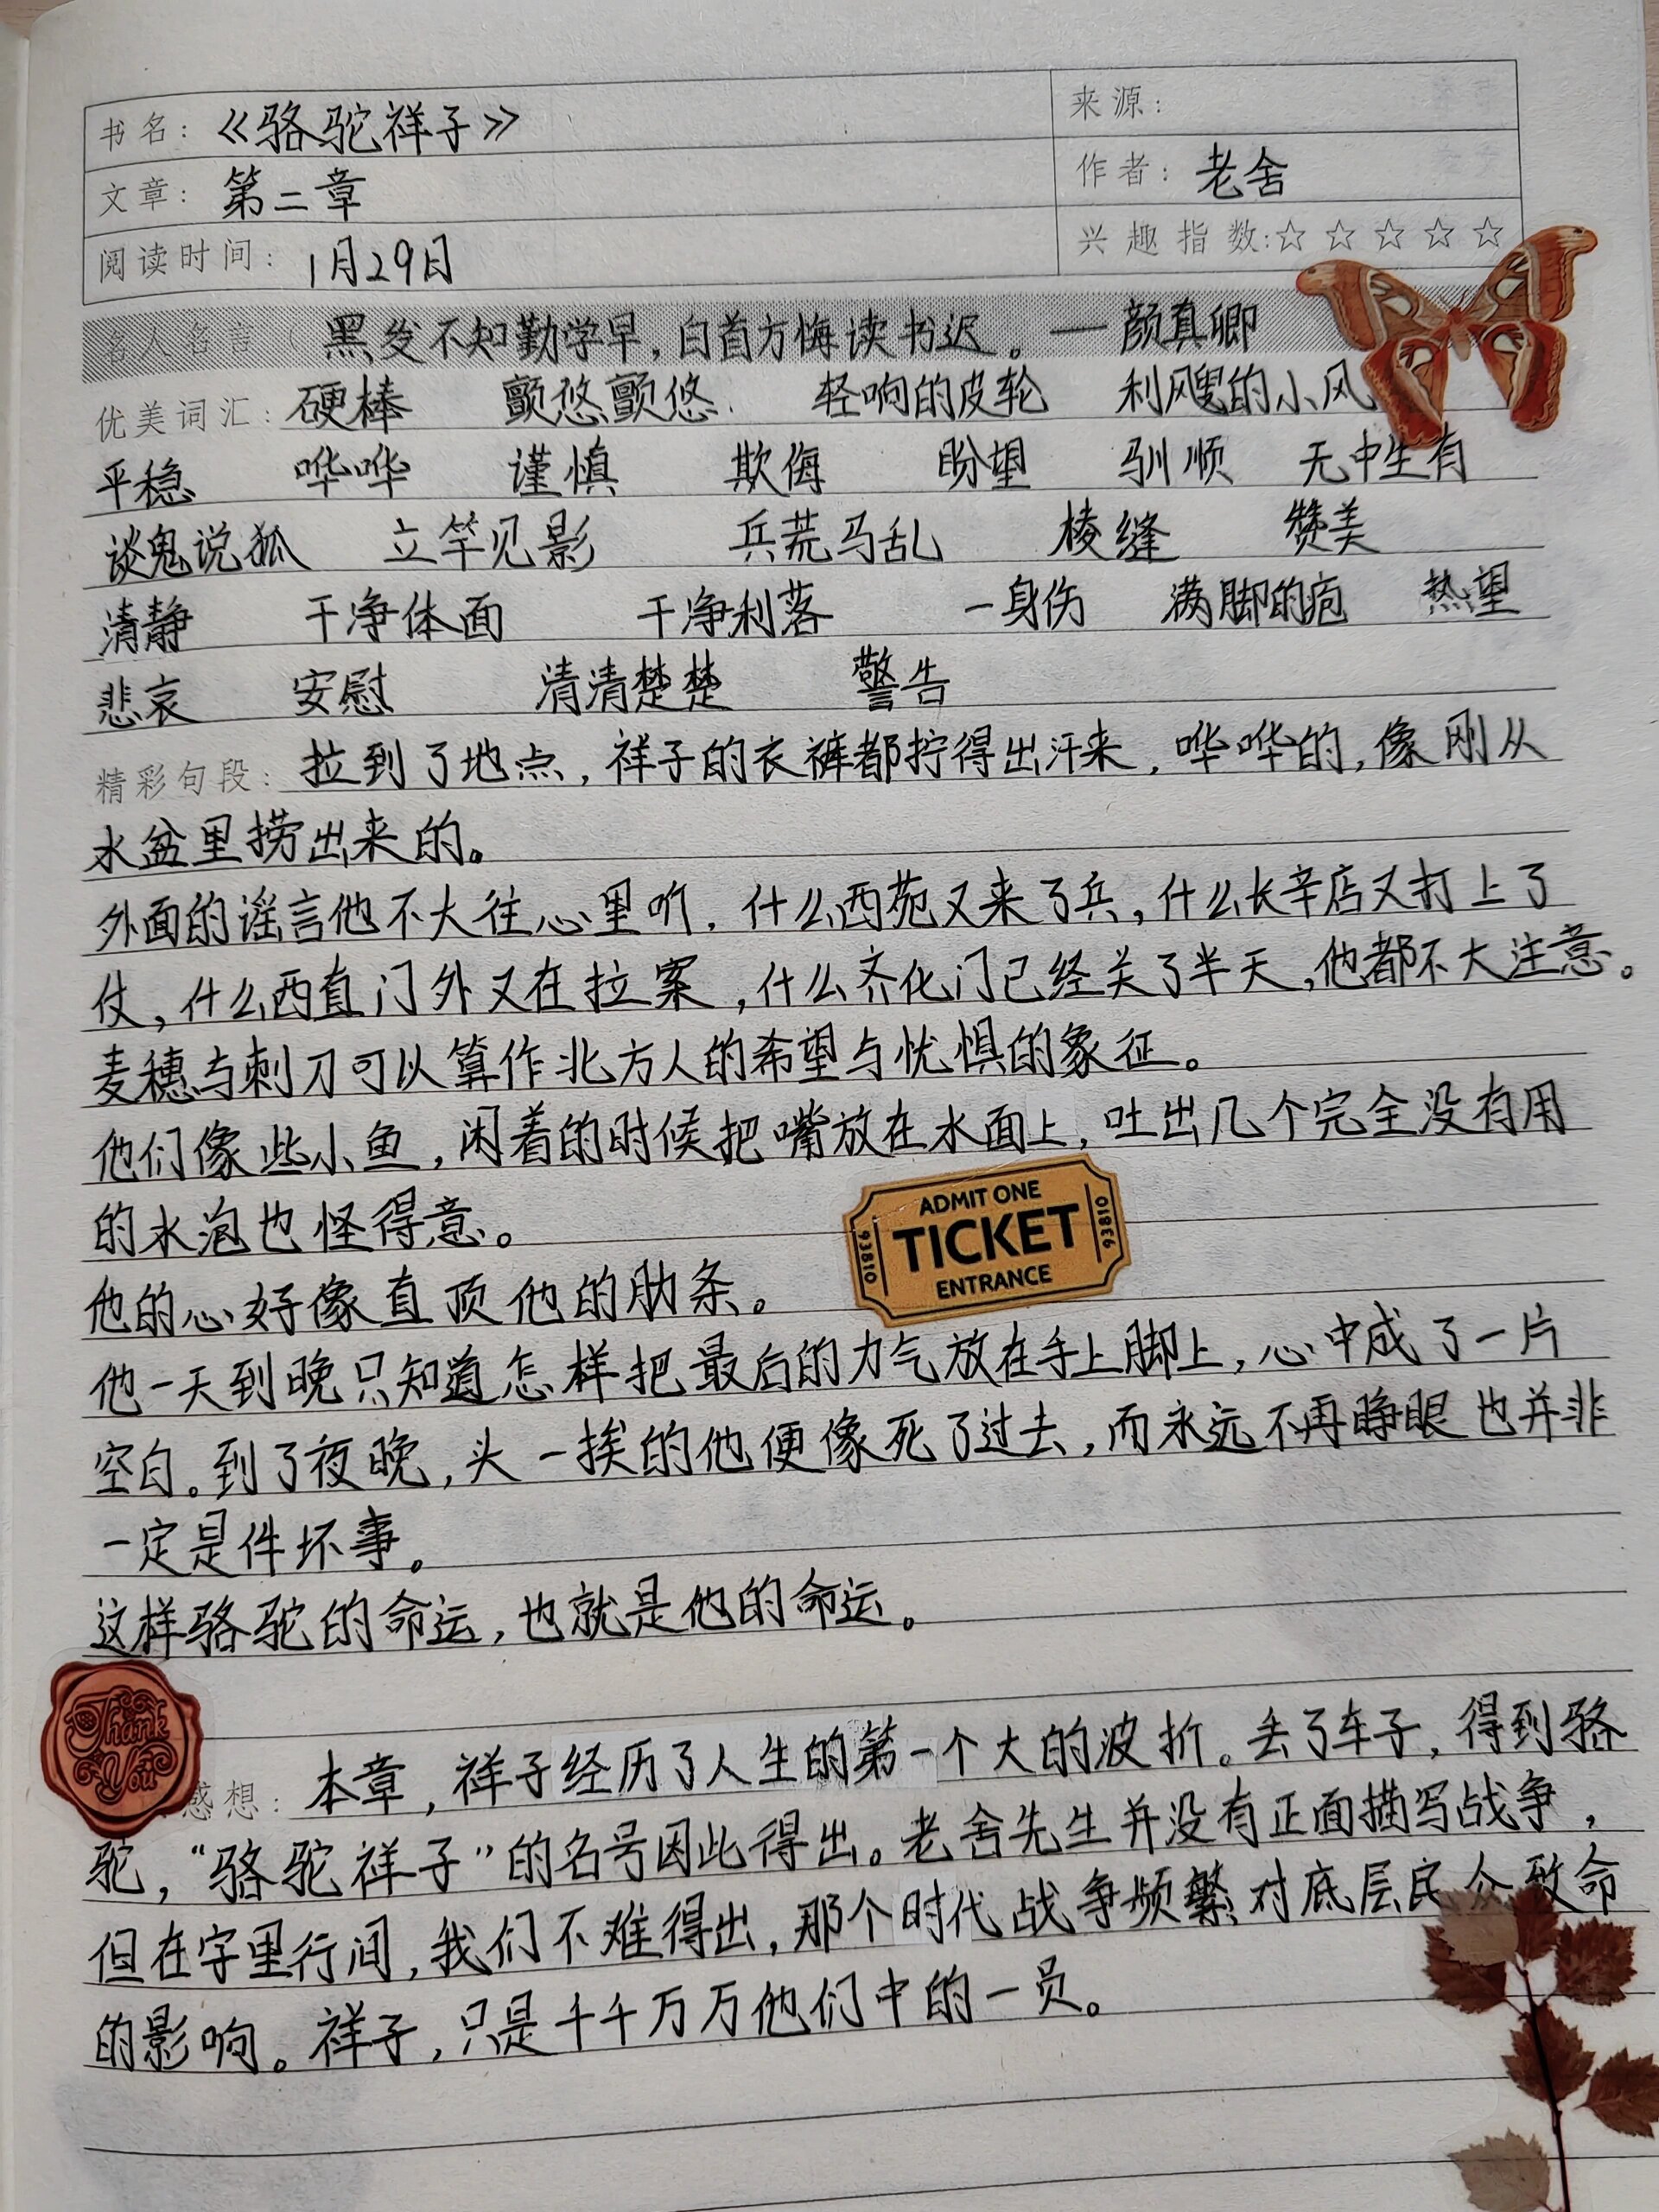 书名：《骆驼祥子》
来源：
文章：第二章
作者：老舍
阅读时间：1月29日
兴趣指数:☆ ☆ ☆ ☆ ☆
名人名言（ 黑发不知勤学早，白首方悔读书迟。 —颜真卿
优美词汇：硬棒 颤悠颤悠 轻响的皮轮 利飕的小风
平稳 哗哗 谨慎 欺侮 盼望 驯顺 无中生有
谈鬼说狐 立竿见影 兵荒马乱 棱缝 赞美
清静 干净体面 干净利落 一身伤 满脚的疱 热望
悲哀 安慰 清清楚楚 警告
精彩句段：拉到了地点，祥子的衣裤都拧得出汗来，哗哗的，像刚从
水盆里捞出来的。
外面的谣言他不大往心里听，什么西苑又来了兵，什么长辛店又打上了
仗，什么西直门外又在拉案，什么齐化门已经关了半天，他都不大注意。
麦穗与刺刀可以算作北方人的希望与忧惧的象征。
他们像些小鱼，闲着的时候把嘴放在水面上，吐出几个完全没有用
的水泡也怪得意。
ADMIT ONE
93810 TICKET 93810
ENTRANCE
他的心好像直顶他的肋条。
他一天到晚只知道怎样把最后的力气放在手上脚上，心中成了一片
空白。到了夜晚，头一挨的他便像死了过去，而永远不再睁眼也并非
一定是件坏事。
这样骆驼的命运，也就是他的命运。
Thank You
感想：本章，祥子经历了人生的第一个大的波折。丢了车子，得到骆
驼，“骆驼祥子”的名号因此得出。老舍先生并没有正面描写战争，
但在字里行间，我们不难得出，那个时代战争频繁对底层民众致命
的影响。祥子，只是千千万万他们中的一员。